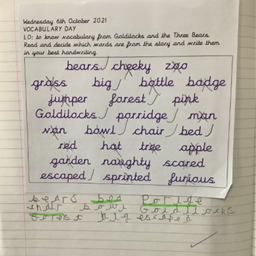 Wednesday 6th October 2021
VOCABULARY DAY
LO: to know vocabulary from Goldilocks and the Three Bears
Read and decide which words are from the story and write them
in your best handwriting.
bears cheeky zoo
grass big bottle badge
jumper forest pink
Goldilocks porridge man
van bowl chair bed
red hat tree apple
garden naughty scared
escaped sprinted furious
bears bed
bowl Goldilocks
big escaped